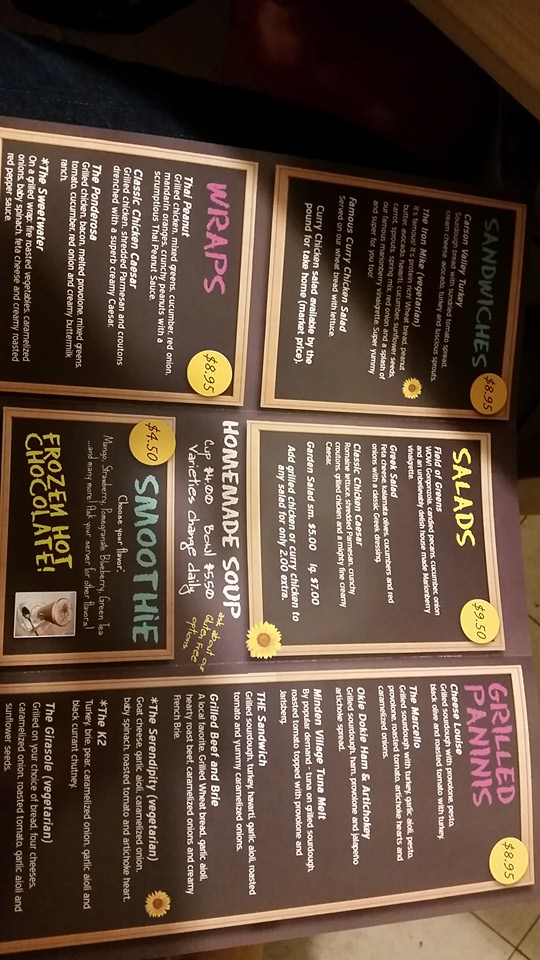 SANDWICHES
$8.95
Carson Valley Turkey
Sourdough bread with sundried tomato spread,
cream cheese, avocado, turkey and luscious sprouts.
The Iron Mike (vegetarian)
It's famous! It's protein rich! Wheat bread, peanut
butter, avocado, havarti, cucumber, sunflower seeds,
carrot, sprouts, spring mix, red onion and a splash of
our famous marionberry vinaigrette. Super yummy
and super for you too!
Famous Curry Chicken Salad
Served on our wheat bread with lettuce.
Curry Chicken salad available by the
pound for take home (market price).
WRAPS
$8.95
Thai Peanut
Grilled chicken, mixed greens, cucumber, red onion,
mandarin oranges, crunchy peanuts with a
scrumptious Thai Peanut Sauce.
Classic Chicken Caesar
Grilled chicken, shredded Parmesan and croutons
drenched with a superb creamy Caesar.
The Ponderosa
Grilled chicken, bacon, melted provolone, mixed greens,
tomato, cucumber, red onion and creamy buttermilk
ranch.
*The Sweetwater
On a grilled wrap, fire roasted vegetables, caramelized
onions, baby spinach, feta cheese and creamy roasted
red pepper sauce.
SALADS
$9.50
Field of Greens
WOW! Gorgonzola, candied pecans, cucumber, onion
and an unbelievably delish house made Marionberry
vinaigrette.
Greek Salad
Feta cheese, kalamata olives, cucumbers and red
onions with a classic Greek dressing.
Classic Chicken Caesar
Romaine lettuce, shredded Parmesan, crunchy
croutons, grilled chicken and a mighty fine creamy
Caesar.
Garden Salad sm. $5.00 lg. $7.00
Add grilled chicken or curry chicken to
any salad for only 2.00 extra.
HOMEMADE SOUP
Cup $4.00 Bowl $5.50
Varieties change daily
*Ask about our
Gluten Free
options
$4.50
SMOOTHIE
Choose your flavor:
Mango, Strawberry, Pomegranate Blueberry, Green Tea
...and many more! Ask your server for other flavors!
FROZEN HOT
CHOCOLATE!
GRILLED
PANINIS
$8.95
Cheese Louise
Grilled sourdough with provolone, pesto,
black olive and roasted tomato with turkey.
The Marcello
Grilled sourdough with turkey, garlic aioli, pesto,
provolone, roasted tomato, artichoke hearts and
caramelized onions.
Okie Dokie Ham & Artichokey
Grilled sourdough, ham, provolone and jalapeño
artichoke spread.
Minden Village Tuna Melt
By popular demand - tuna on grilled sourdough,
roasted tomato topped with provolone and
Jarlsberg.
THE Sandwich
Grilled sourdough, turkey, havarti, garlic aioli, roasted
tomato and yummy caramelized onions.
Grilled Beef and Brie
A local favorite. Grilled Wheat bread, garlic aioli,
hearty roast beef, caramelized onions and creamy
French Brie.
*The Serendipity (vegetarian)
Goat cheese, garlic aioli, caramelized onion,
baby spinach, roasted tomato and artichoke heart.
*The K2
Turkey, brie, pear, caramelized onion, garlic aioli and
black currant chutney.
The Girasole (vegetarian)
Grilled on your choice of bread, four cheeses,
caramelized onion, roasted tomato, garlic aioli and
sunflower seeds.